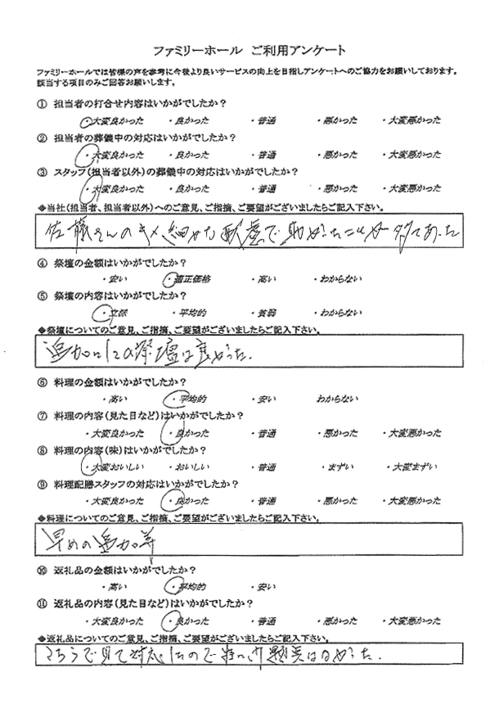 ファミリーホール ご利用アンケート
ファミリーホールでは皆様の声を参考に今後より良いサービスの向上を目指しアンケートへのご協力をお願いしております。
該当する項目のみご回答お願いします。
① 担当者の打合せ内容はいかがでしたか？
・大変良かった ・良かった ・普通 ・悪かった ・大変悪かった
② 担当者の葬儀中の対応はいかがでしたか？
・大変良かった ・良かった ・普通 ・悪かった ・大変悪かった
③ スタッフ(担当者以外)の葬儀中の対応はいかがでしたか？
・大変良かった ・良かった ・普通 ・悪かった ・大変悪かった
◆当社(担当者、担当者以外)へのご意見、ご指摘、ご要望がございましたらご記入下さい。
佐藤さんのキメ細やかな配慮で助かったことが多々あった
④ 祭壇の金額はいかがでしたか？
・安い ・適正価格 ・高い ・わからない
⑤ 祭壇の内容はいかがでしたか？
・立派 ・平均的 ・貧弱 ・わからない
◆祭壇についてのご意見、ご指摘、ご要望がございましたらご記入下さい。
追加した祭壇は良かった.
⑥ 料理の金額はいかがでしたか？
・高い ・平均的 ・安い わからない
⑦ 料理の内容(見た目など)はいかがでしたか？
・大変良かった ・良かった ・普通 ・悪かった ・大変悪かった
⑧ 料理の内容(味)はいかがでしたか？
・大変おいしい ・おいしい ・普通 ・まずい ・大変まずい
⑨ 料理配膳スタッフの対応はいかがでしたか？
・大変良かった ・良かった ・普通 ・悪かった ・大変悪かった
◆料理についてのご意見、ご指摘、ご要望がございましたらご記入下さい。
早めの追加等
⑩ 返礼品の金額はいかがでしたか？
・高い ・平均的 ・安い
⑪ 返礼品の内容(見た目など)はいかがでしたか？
・大変良かった ・良かった ・普通 ・悪かった ・大変悪かった
◆返礼品についてのご意見、ご指摘、ご要望がございましたらご記入下さい。
こちらで見て対応したので はなかった.